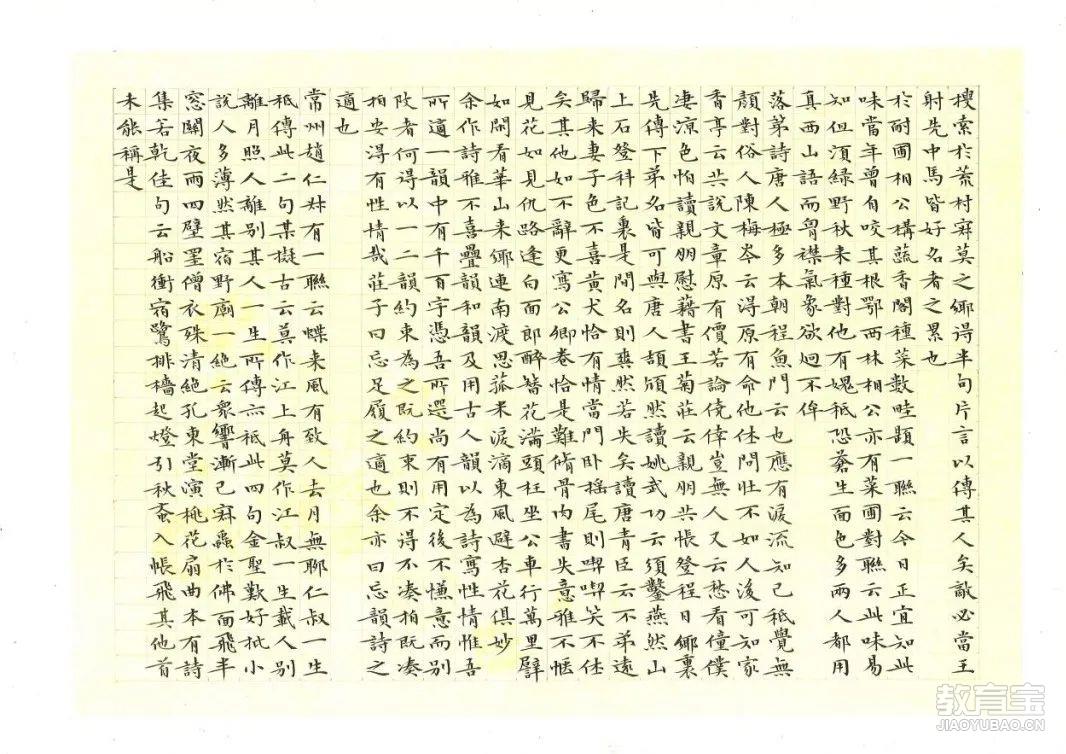 搜索於荒村寂莫之鄉得半句片言以傳其人矣敵必當王
射先中馬皆好名者之累也
於耐圃相公構蔬香閣種菜數畦題一聯云今日正宜知此
味當年曾自咬其根鄂西林相公亦有菜圃對聯云此味易
知但須綠野秋來種對他有媿秪恐蒼生面色多兩人都用
真西山語而胷襟氣象欲迥不侔
落第詩唐人極多本朝程魚門云也應有淚流知己秪覺無
顏對俗人陳梅岑云得原有命他休問壯不如人後可知家
香亭云共說文章原有價若論僥倖豈無人又云愁看僮僕
淒涼色怕讀親朋慰藉書王菊莊云親朋共悵登程日鄉裏
先傳下第名皆可與唐人頡頏然讀姚武功云須鑿燕然山
上石登科記裏是閒名則爽然若失矣讀唐青臣云不弟遠
歸來妻子色不喜黃犬恰有情當門卧搖尾則喫喫笑不休
矣其他如不辭更寫公卿卷恰是難脩骨肉書失意雅不愜
見花如見仇路逢白面郎醉簪花滿頭枉坐公車行萬里譬
如閒看華山來鄉連南渡思菰米淚滴東風避杏花俱妙
余作詩雅不喜疊韻和韻及用古人韻以為詩寫性情惟吾
所適一韻中有千百字憑吾所選尚有用定後不慊意而別
改者何得以一二韻約束為之既約束則不得不湊拍既湊
拍安得有性情哉莊子曰忘足履之適也余亦曰忘韻詩之
適也
常州趙仁叔有一聯云蝶來風有致人去月無聊仁叔一生
秪傳此二句某擬古云莫作江上舟莫作江叔一生載人別
離月照人離別其人一生所傳亦秪此四句金聖歎好批小
說人多薄然其宿野廟一絕云眾響漸已寂蟲於佛面飛半
窓關夜雨四壁罣僧衣殊清絕孔東堂演桃花扇曲本有詩
集若乾佳句云船衝宿鷺排檣起燈引秋蚉入帳飛其他首
未能稱是
教育宝
JIAOYUBAO.CN